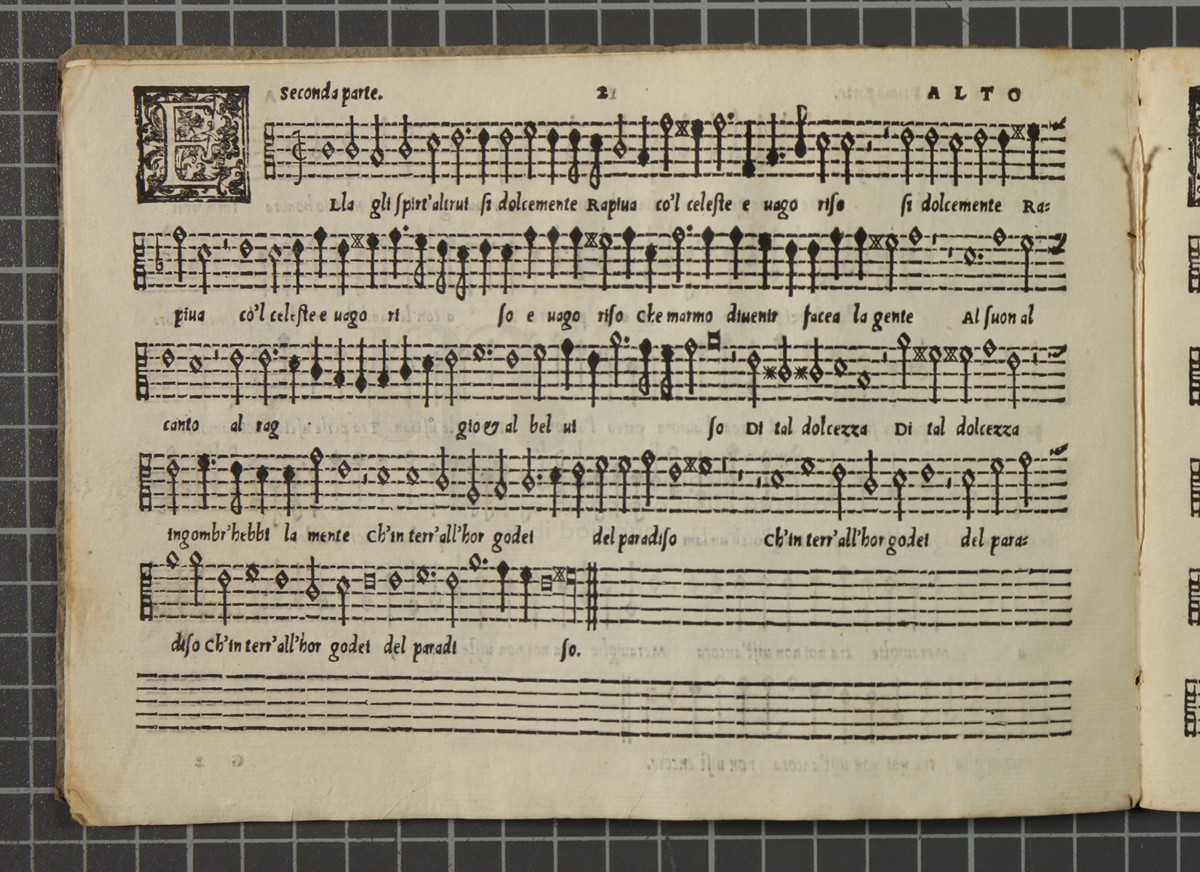 Seconda parte. 2 ALTO
ELla gli spirt'altrui si dolcemente Rapiua co'l celeste e uago riso si dolcemente Ra-
piua cò'l celeste e uago ri so e uago riso Che marmo diuenir facea la gente Al suon al
canto al rag gio & al bel ui so Di tal dolcezza Di tal dolcezza
ingombr'hebbi la mente Ch'in terr'all'hor godei del paradiso Ch'in terr'all'hor godei del para-
diso Ch'in terr'all'hor godei del paradi so.